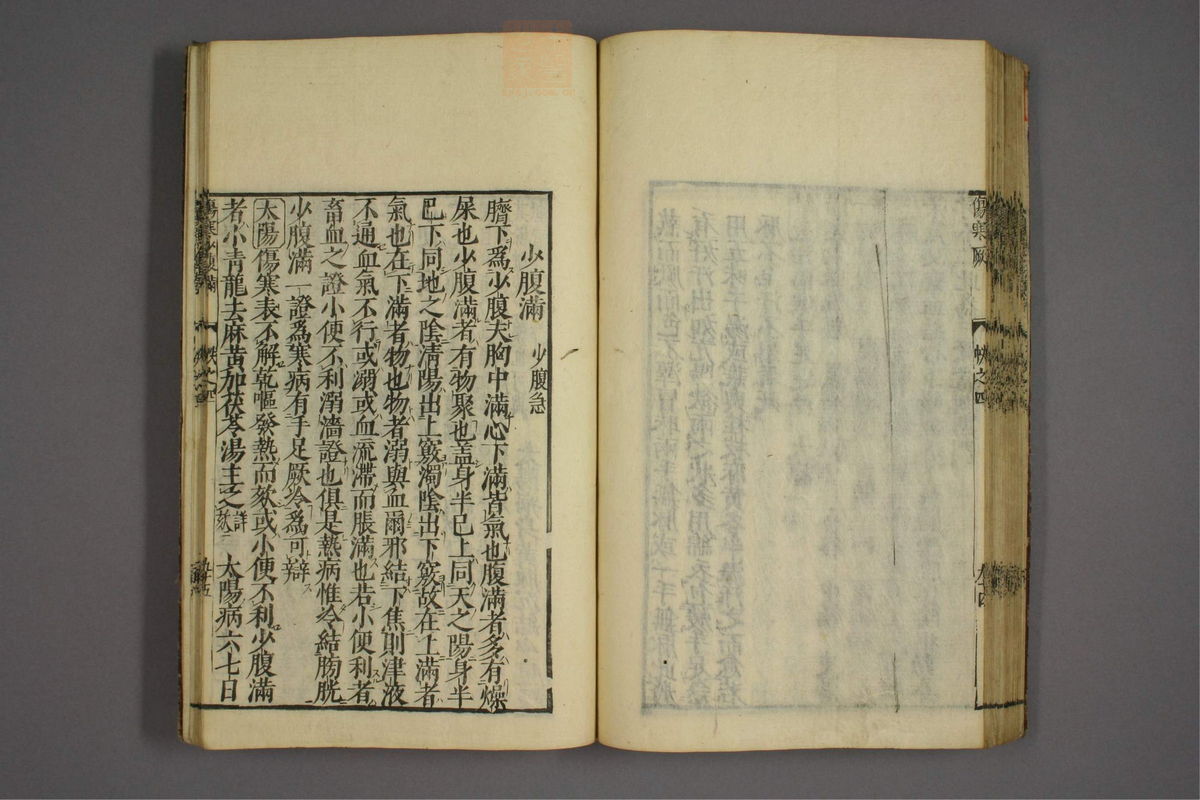 少腹滿 少腹急
臍下爲少腹夫胸中滿心下滿皆氣也腹滿者多有燥
屎也少腹滿者有物聚也盖身半已上同天之陽身半
已下同地之陰淸陽出上竅濁陰出下竅故在上滿者
氣也在下滿者物也物者溺與血爾邪結下焦則津液
不通血氣不行或溺或血流滯而脹滿也若小便利者
畜血之證小便不利溺濇證也俱是熱病惟冷結膀胱
少腹滿一證爲寒病有手足厥冷爲可辯
太陽傷寒表不解乾嘔發熱而欬或小便不利少腹滿
者小靑龍去麻黃加茯苓湯主之詳欬 太陽病六七日
傷寒少腹滿 帙之四
傷寒厥 帙之四